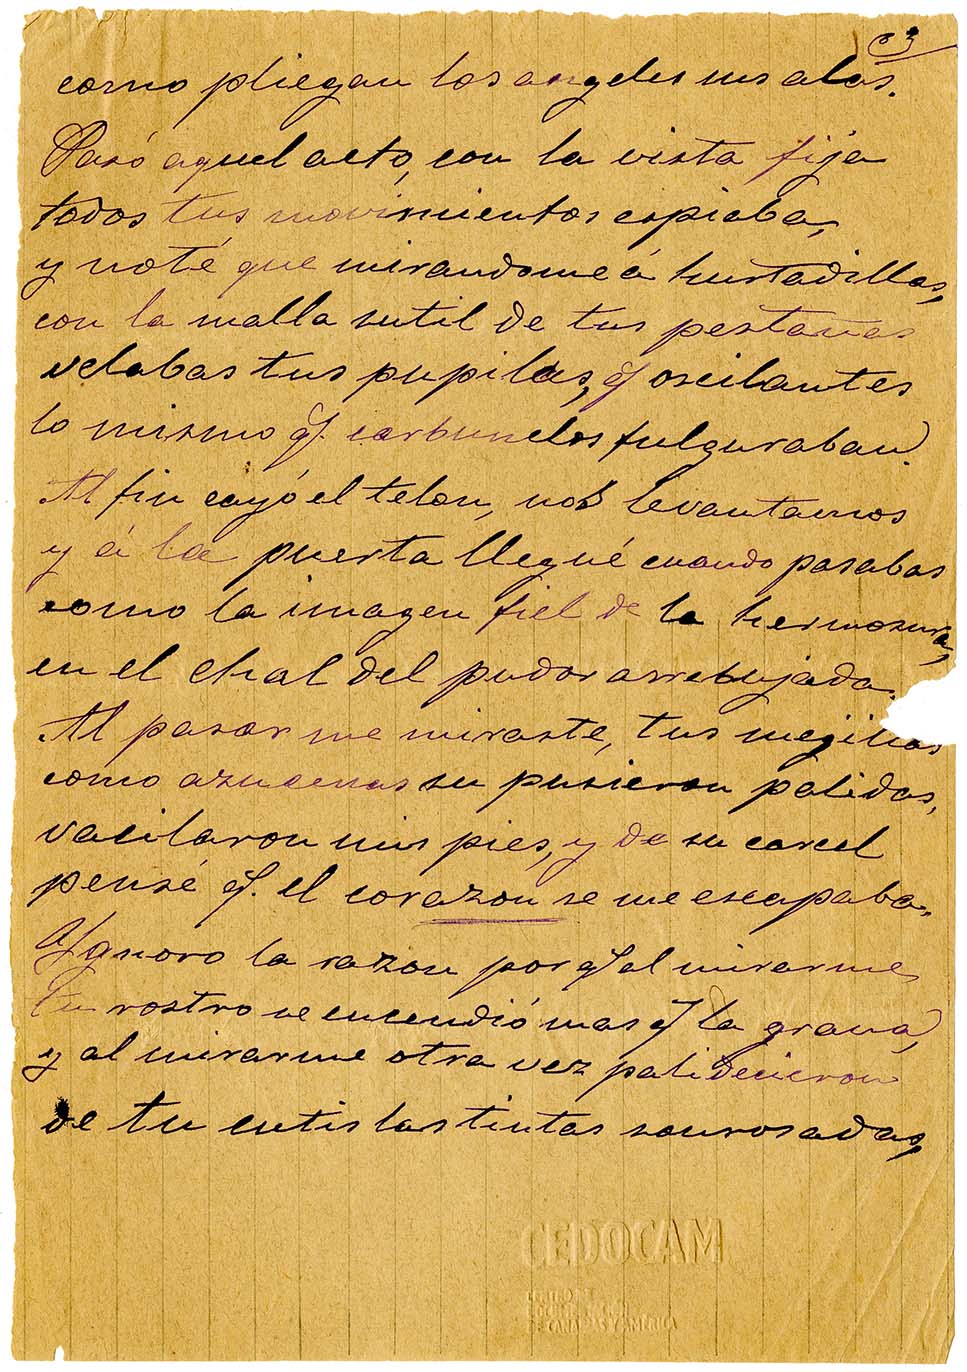 3
como pliegan los angeles sus alas.
Pasó aquel acto, con la vista fija
todos tus movimientos espiaba,
y noté que mirandome á hurtadillas,
con la malla sutil de tus pestañas
velabas tus pupilas, q̃ oscilantes
lo mismo q̃. carbunclos fulguraban.
Al fin cayó el telon, nos levantamos
y á la puerta llegué cuando pasabas
como la imagen fiel de la hermosura,
en el chal del pudor arrebujada.
Al pasar me miraste, tus mejillas
como azucenas su pusieron palidas,
vacilaron mis pies, y de su carcel
pensé q̃. el corazon se me escapaba.
Ygnoro la razon por q̃ al mirarme
tu rostro se encendió mas q̃ la grana,
y al mirarme otra vez palidecieron
de tu cutis las tintas sonrosadas,
CEDOCAM
CENTRO DE
DOCUMENTACIÓN
DE CANARIAS Y AMÉRICA